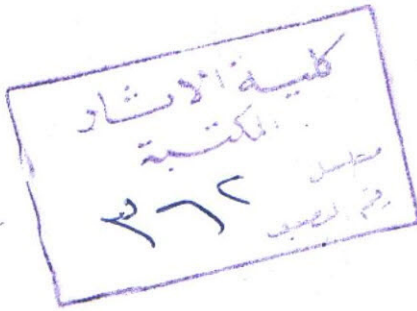 كلية الارشاد
المكتبة
تسلسل ٣٦٢
رقم التصنيف